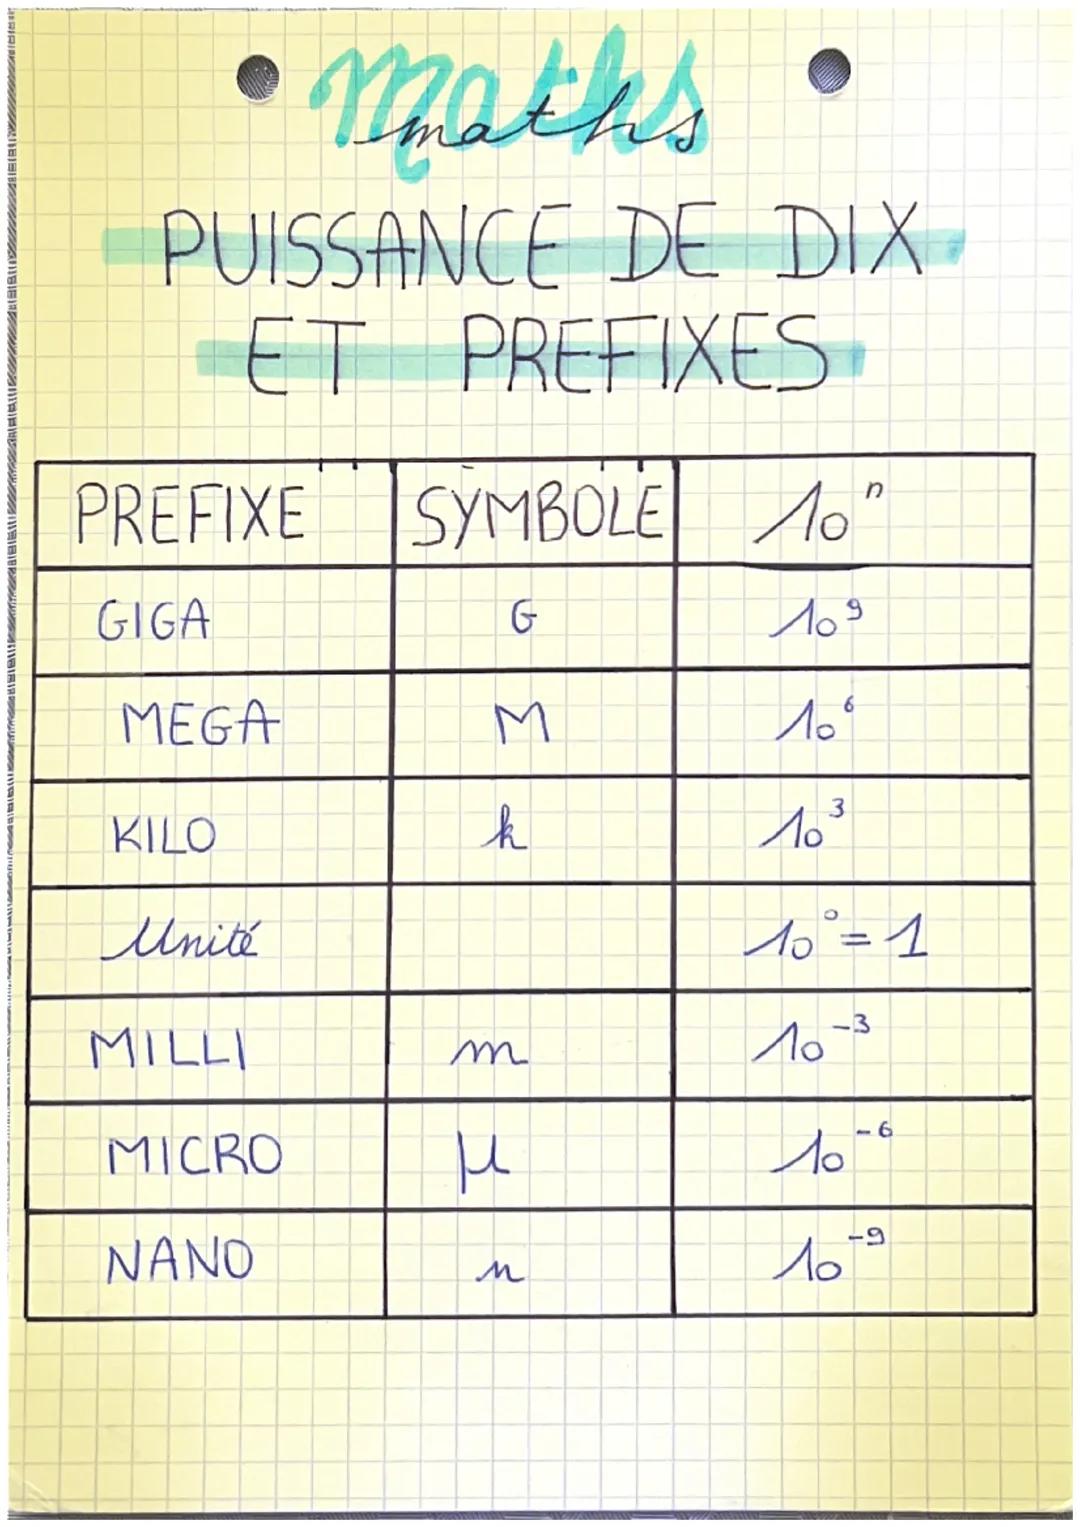 maths
maths
PUISSANCE DE DIX
ET PREFIXES
PREFIXE SYMBOLE 10ⁿ
GIGA G 10⁹
MEGA M 10⁶
KILO k 10³
Unité 10⁰ = 1
MILLI m 10⁻³
MICRO µ 10⁻⁶
NANO n 10⁻⁹